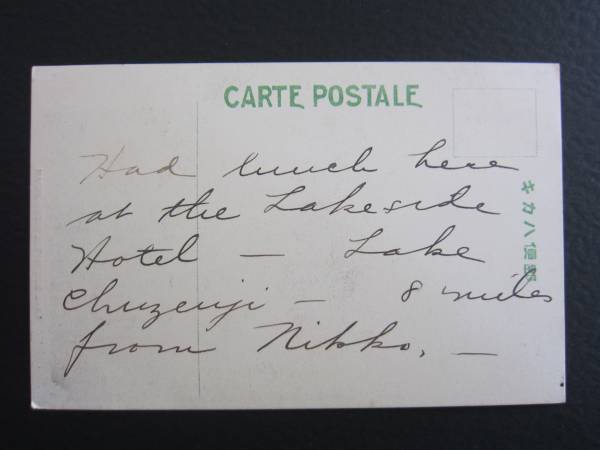 CARTE POSTALE
Had lunch here
at the Lakeside
Hotel — Lake
Chuzenji — 8 miles
from Nikko. —
キカハ便郵